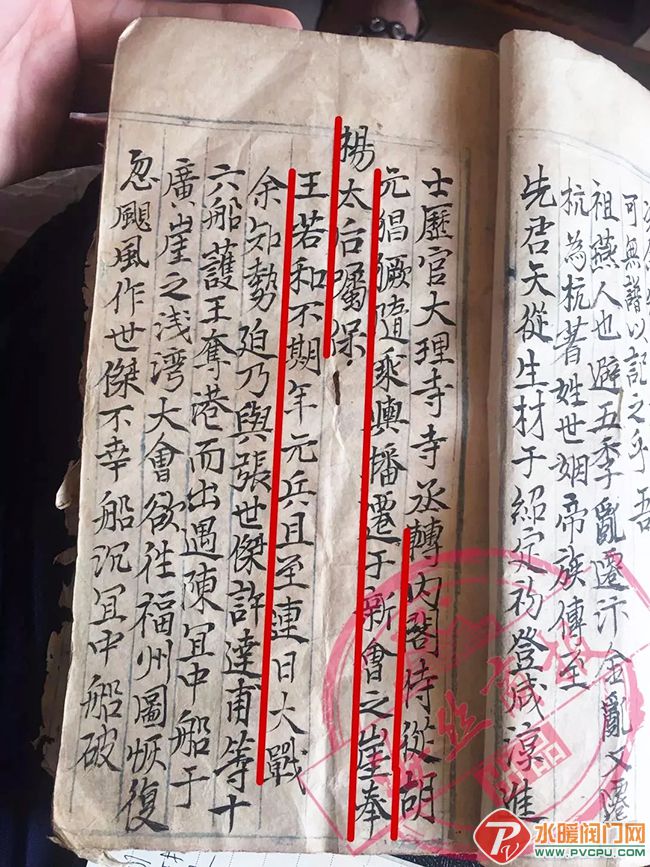 可無譜以記之乎吾
祖燕人也避五季亂遷汴金亂又僊
杭為杭著姓世姻帝族傳至
先君天從生材于紹定初登咸淳進
士歷官大理寺寺丞轉內閣侍從胡
元猖獗隨乘輿播遷于新會之崖奉
楊太后囑保
王若和不期年元兵且至連日大戰
余知勢廹乃與張世傑許達甫等十
六船護王奪港而出遇陳冝中船于
廣崖之浅灣大會欲徃福州圖恢復
忽颶風作世傑不幸船沉冝中船破
水暖阀门网
WWW.PVCPU.COM